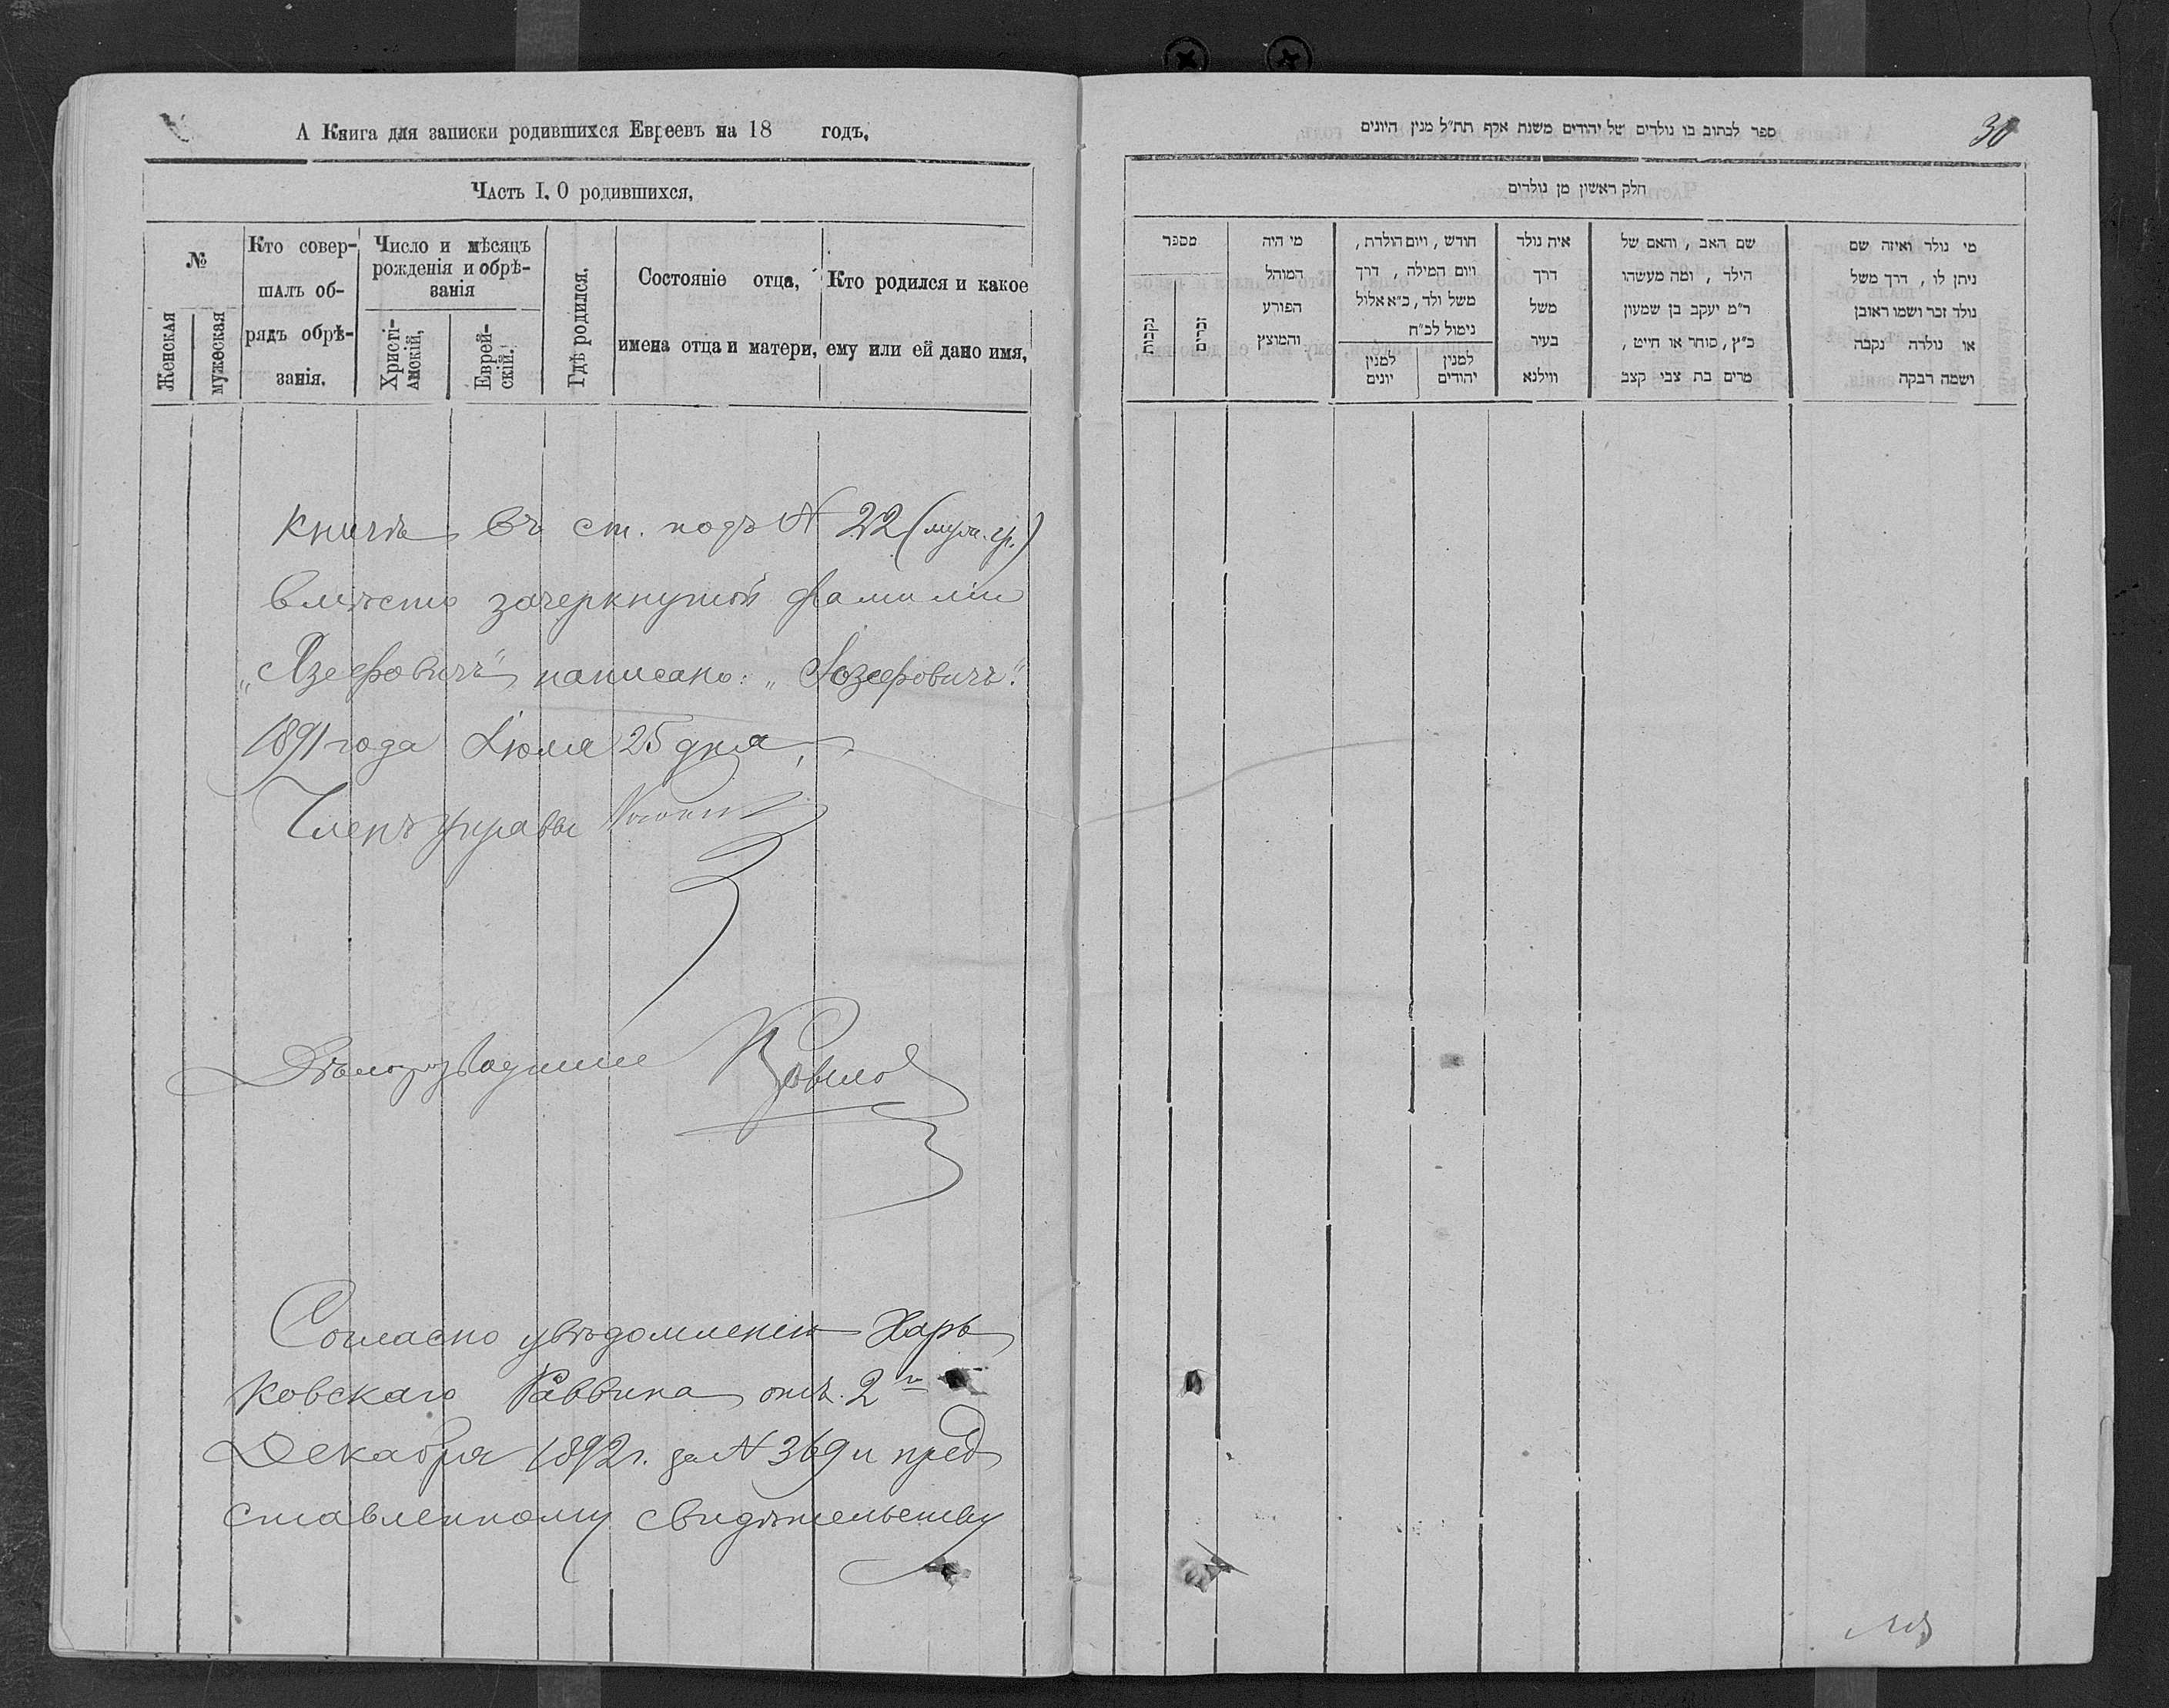 А Книга для записки родившихся Евреевъ на 18 годъ.
Часть I. О родившихся.
№
Женская
мужеская
Кто совер-
шалъ об-
рядъ обрѣ-
занія.
Число и мѣсяцъ
рожденія и обрѣ-
занія
Христі-
анскій.
Еврей-
скій.
Гдѣ родился.
Состояніе отца,
имена отца и матери,
Кто родился и какое
ему или ей дано имя,
книгѣ въ ст. подъ № 22 (муж. гр.)
вмѣсто зачеркнутой фамиліи
„Язефовичъ" написано: „Іозефовичъ".
1891 года Іюля 25 дня,
Членъ управы
Дѣлопроизводитель
Согласно увѣдомленію Харь
ковскаго Раввина отъ 2го
Декабря 1892 г. за № 369 и пред
ставленному свидѣтельству
30
ספר לכתוב בו נולדים של יהודים משנת אלף תת״ל מנין היונים
חלק ראשון מן נולדים
מספר
נקבות
זכרים
מי היה
המוהל
הפורע
והמוצץ
חודש, ויום הולדת,
ויום המילה, דרך
משל ולד, כ״א אלול
נימול לכ״ח
למנין
יונים
למנין
יהודים
אית נולד
דרך
משל
בעיר
ווילנא
שם האב, והאם של
הילד, ומה מעשהו
ר״מ יעקב בן שמעון
כ״ץ, סוחר או חייט,
מרים בת צבי קצב
מי נולד ואיזה שם
ניתן לו, דרך משל
נולד זכר ושמו ראובן
או נולדה נקבה
ושמה רבקה